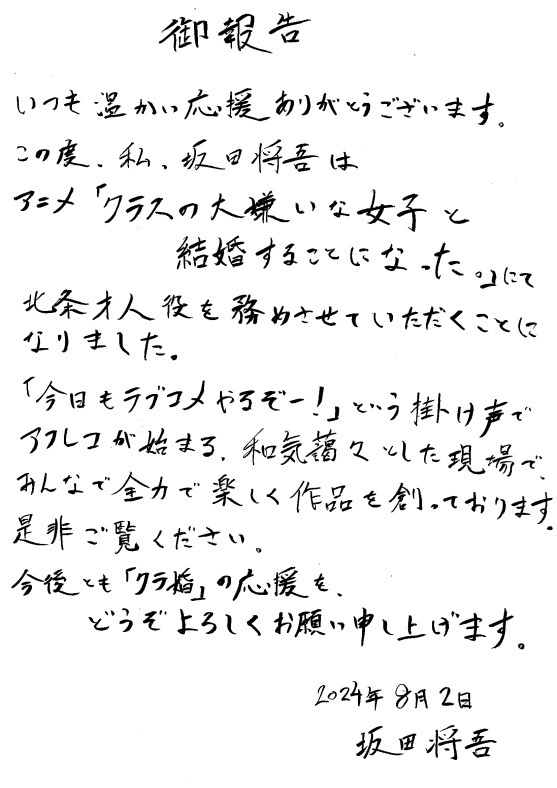 御報告
いつも温かい応援ありがとうございます。
この度、私、坂田将吾は
アニメ「クラスの大嫌いな女子と
結婚することになった。」にて
北条才人役を務めさせていただくことに
なりました。
「今日もラブコメやるぞー!」という掛け声で
アフレコが始まる、和気藹々とした現場で、
みんなで全力で楽しく作品を創っております。
是非ご覧ください。
今後とも「クラ婚」の応援を、
どうぞよろしくお願い申し上げます。
2024年8月2日
坂田将吾